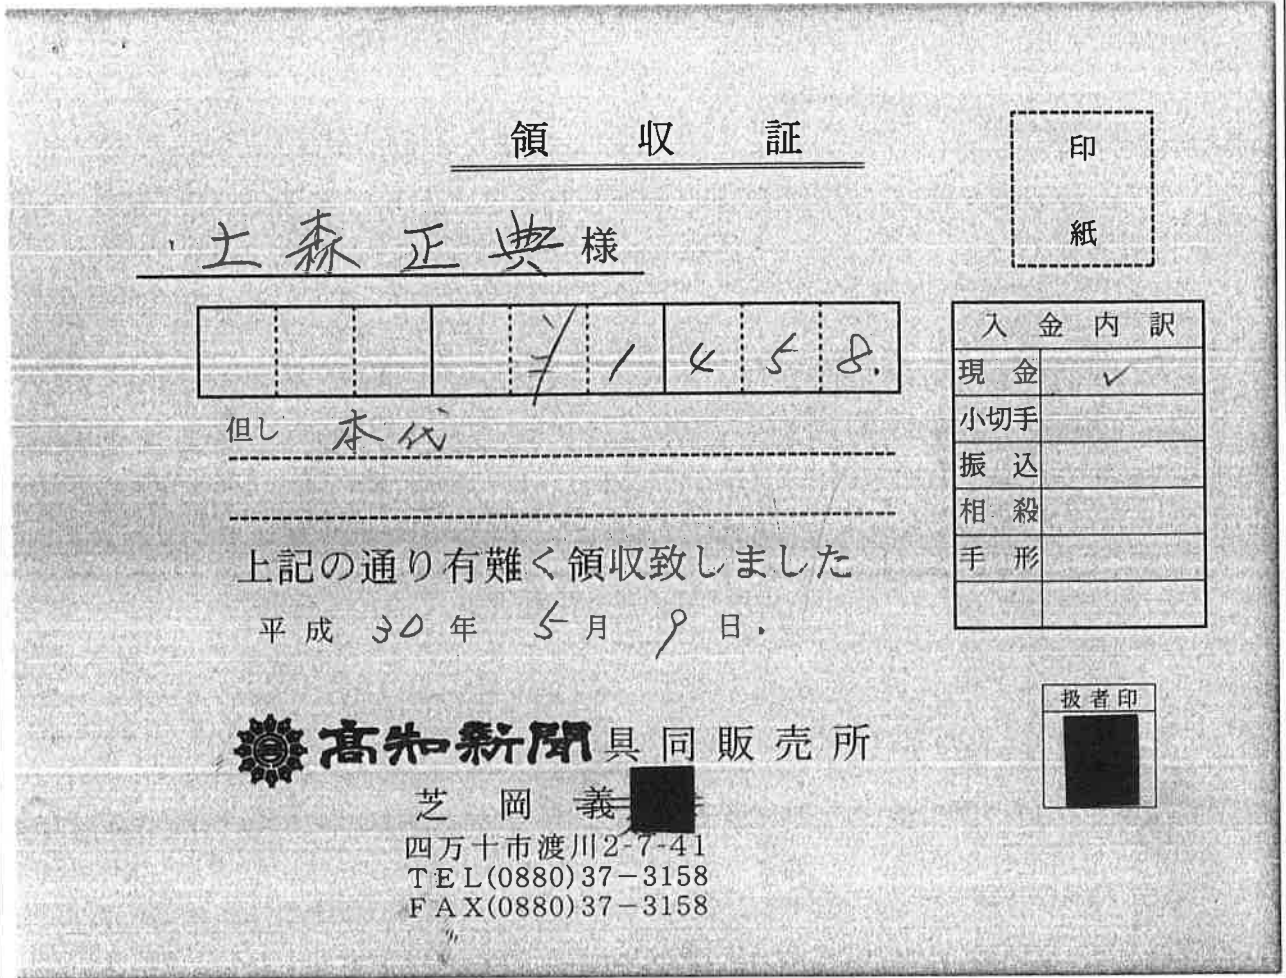 領収証
印
紙
土森正典様
¥1458.
但し 本代
上記の通り有難く領収致しました
平成30年5月9日.
入金内訳
現金 ✓
小切手
振込
相殺
手形
扱者印
高知新聞具同販売所
芝岡義
四万十市渡川2-7-41
TEL(0880)37-3158
FAX(0880)37-3158